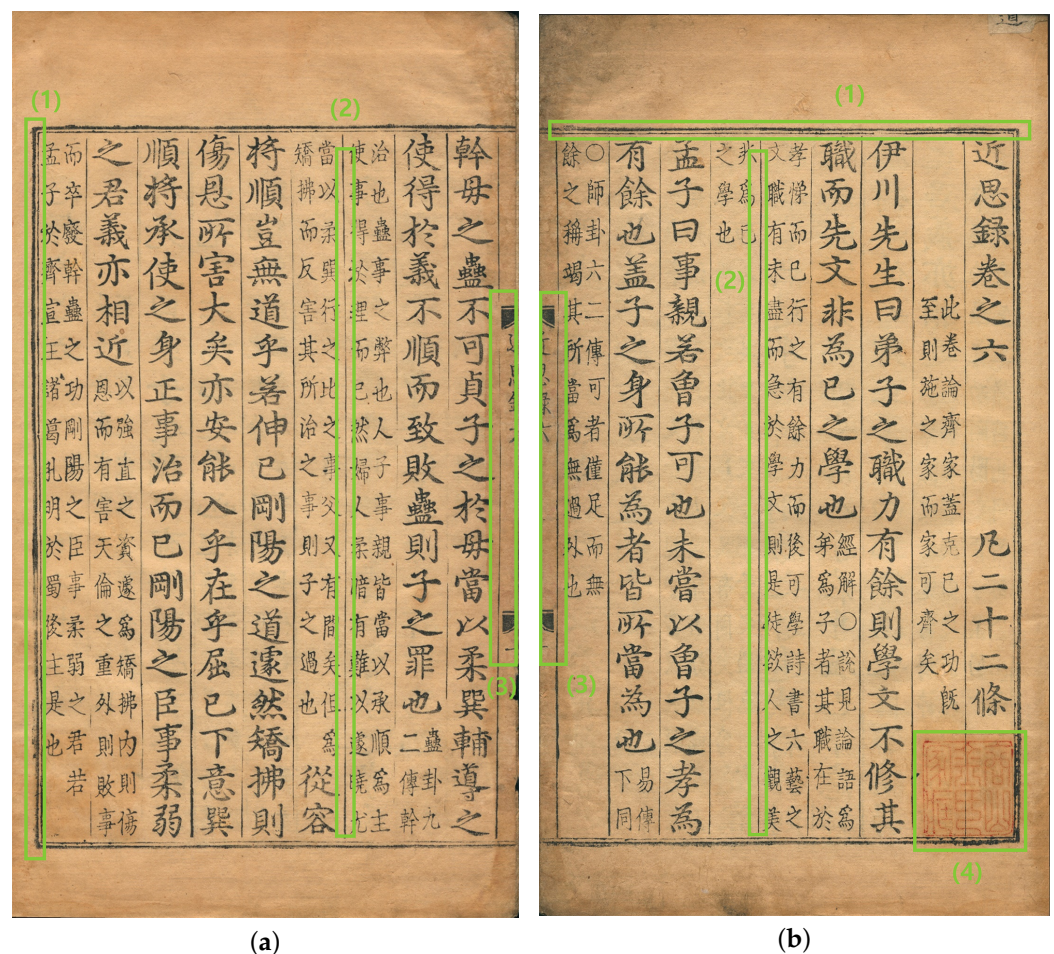 (1)
(2)
幹母之蠱不可貞子之於母當以柔巽輔導之
使得於義不順而致敗蠱則子之罪也
蠱卦九
二傳幹
治也蠱事之弊也人子事親皆當以承順爲主
使事得於理而已然婦人柔暗有難以遽曉尤
當以柔巽行之比之事父又有間矣但爲
矯拂而反害其所治之事則子之過也
從容
將順豈無道乎若伸已剛陽之道遽然矯拂則
傷恩所害大矣亦安能入乎在乎屈已下意巽
順將承使之身正事治而已剛陽之臣事柔弱
之君義亦相近
以強直之資遽爲矯拂內則傷
恩而有害天倫之重外則敗事
而卒廢幹蠱之功剛陽之臣事柔弱之君若
孟子於齊宣王諸葛孔明於蜀後主是也
(3)
(a)
道
(1)
近思録卷之六 凡二十二條
此卷論齊家蓋克已之功旣
至則施之家而家可齊矣
伊川先生曰弟子之職力有餘則學文不修其
職而先文非為已之學也
經解○說見論語爲
弟爲子者其職在於
孝悌而已行之有餘力而後可學詩書六藝之
文職有未盡而急於學文則是徒欲人之觀美
非爲已
之學也
孟子曰事親若曾子可也未嘗以曾子之孝為
有餘也盖子之身所能為者皆所當為也
易傳
下同
○師卦六二傳可者僅足而無
餘之稱竭其所當爲無過外也
近思錄六
(2)
(3)
(4)
(b)